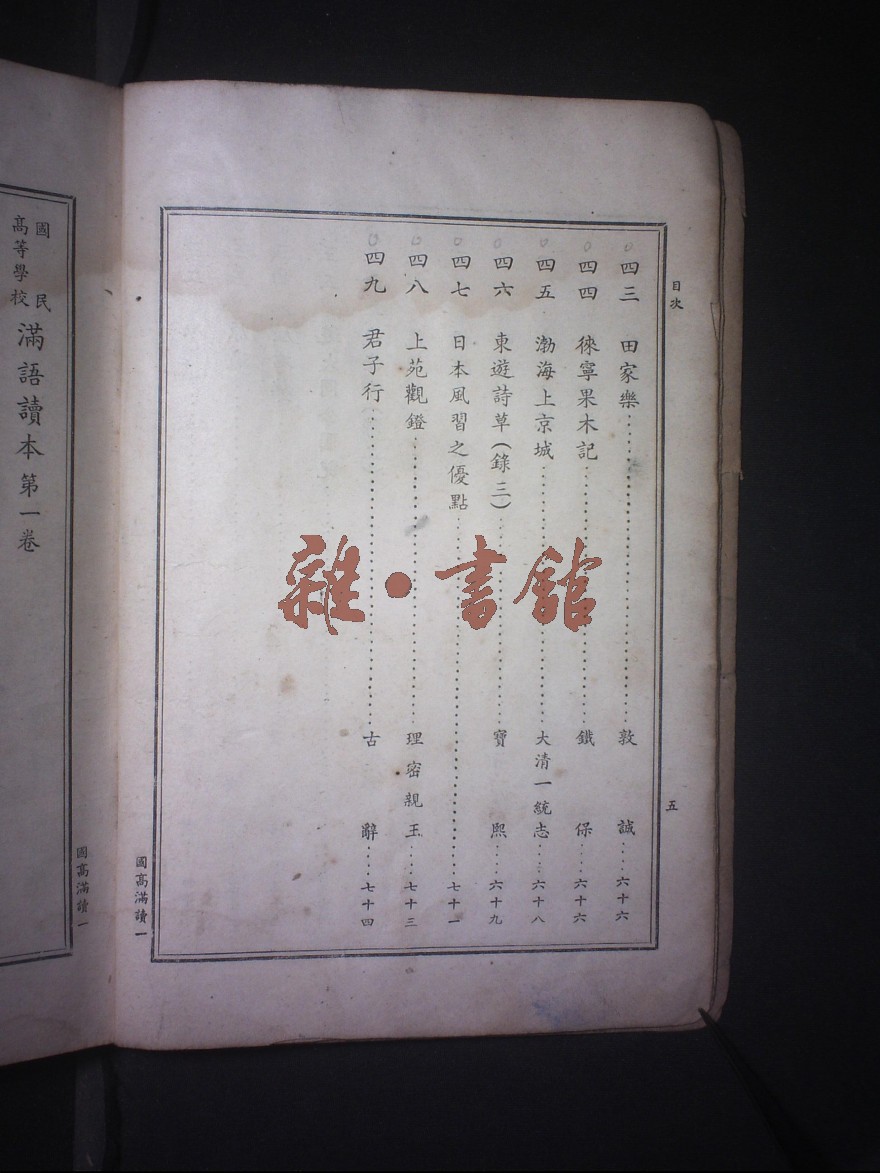 目次
五
四三 田家樂 敦誠 六十六
四四 徠寧果木記 鐵保 六十六
四五 渤海上京城 大清一統志 六十八
四六 東遊詩草(錄三) 寶熙 六十九
四七 日本風習之優點 七十一
四八 上苑觀鐙 理密親王 七十三
四九 君子行 古辭 七十四
國高滿讀一
雜・書館
國民
高等學校
滿語讀本 第一卷
國高滿讀一